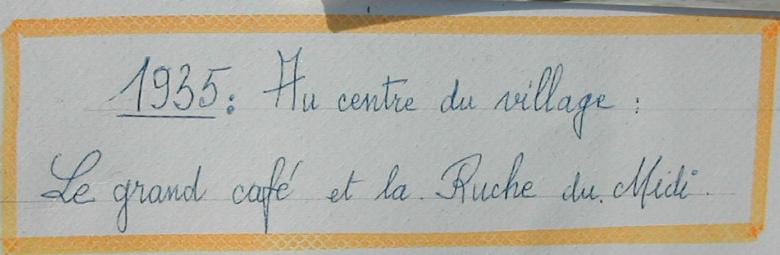 1935: Au centre du village :
Le grand café et la Ruche du Midi.